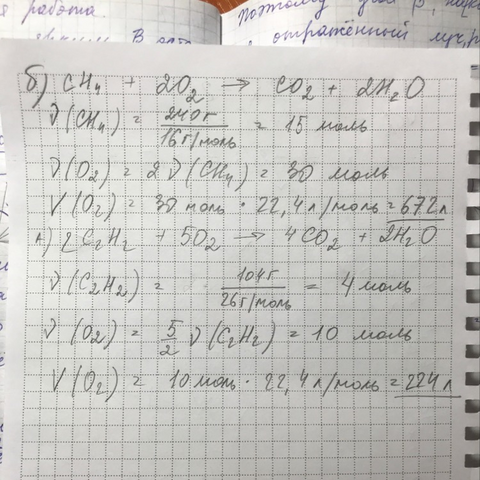 я работа
Поэтому угол β,
отражённый луч,
б) CH₄ + 2O₂ → CO₂ + 2H₂O
ν(CH₄) = 240г / 16г/моль = 15 моль
ν(O₂) = 2ν(CH₄) = 30 моль
V(O₂) = 30 моль · 22,4 л/моль = 672л
а) 2C₂H₂ + 5O₂ → 4CO₂ + 2H₂O
ν(C₂H₂) = 104г / 26г/моль = 4 моль
ν(O₂) = 5/2 ν(C₂H₂) = 10 моль
V(O₂) = 10 моль · 22,4 л/моль = 224 л